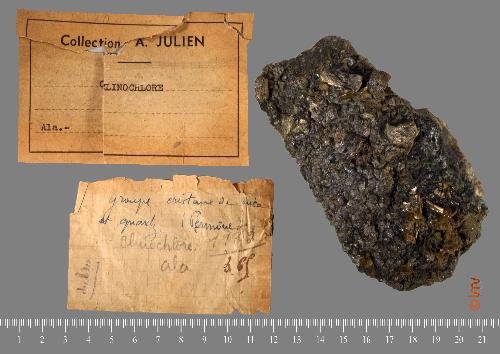 Collection A. JULIEN
CLINOCHLORE
Ala.-
groupe cristaux de mica
et quartz
clinochlore
ala
1 2 3 4 5 6 7 8 9 10 11 12 13 14 15 16 17 18 19 20 21